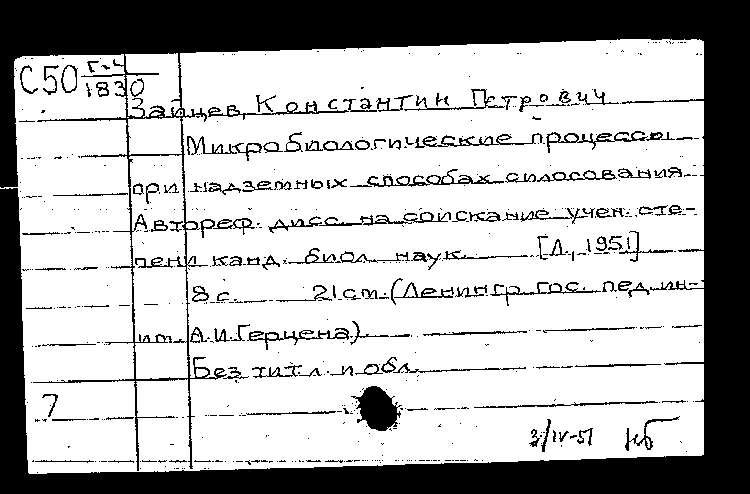 С50 Г-4
1830
Зайцев, Константин Петрович
Микробиологические процессы
при надземных способах силосования.
Автореф. дисс. на соискание учен. сте-
пени канд. биол. наук. [Л., 1951]
8 с. 21 cm. (Ленингр. гос. пед. ин-
ит. А.И.Герцена).
Без титл. и обл.
7
3/IV-51